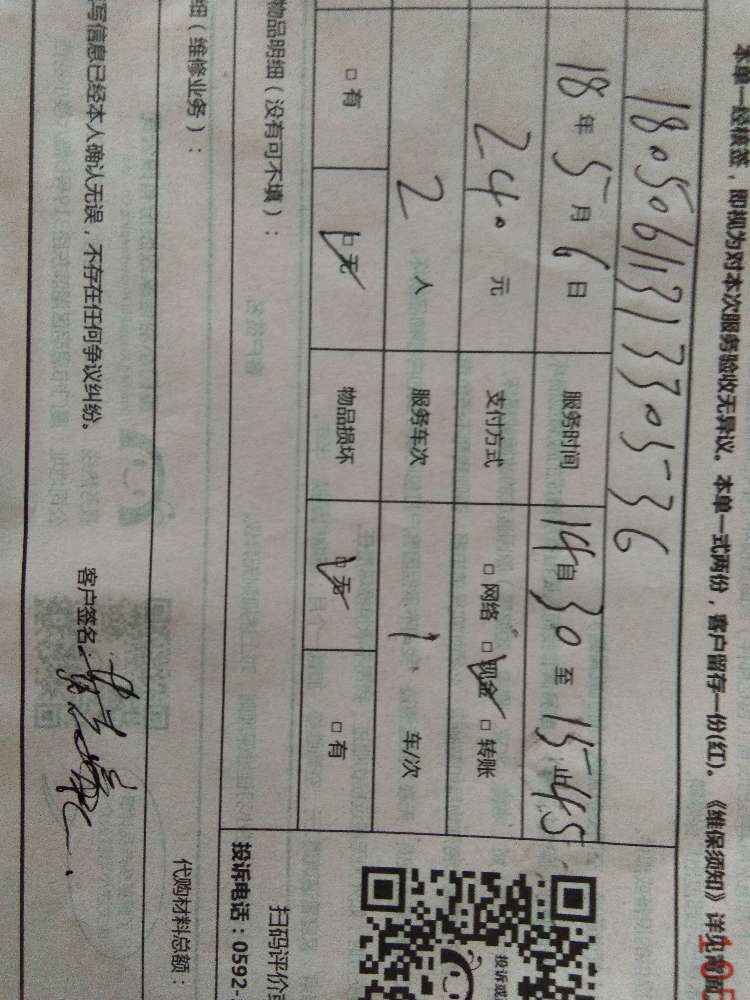 本单一经核签，即视为对本次服务验收无异议。本单一式两份，客户留存一份(红)。《维保须知》详见背面
18050613133 0536
18年5月6日 服务时间 14自30至15时45
240元 支付方式 □网络 ☑现金 □转账
2人 服务车次 1 车/次
□有 ☑无 物品损坏 ☑无 □有
物品明细（没有可不填）：
扫码评价或
投诉或
投诉电话：0592-
细（维修业务）：
代购材料总额：
写信息已经本人确认无误，不存在任何争议纠纷。
客户签名：